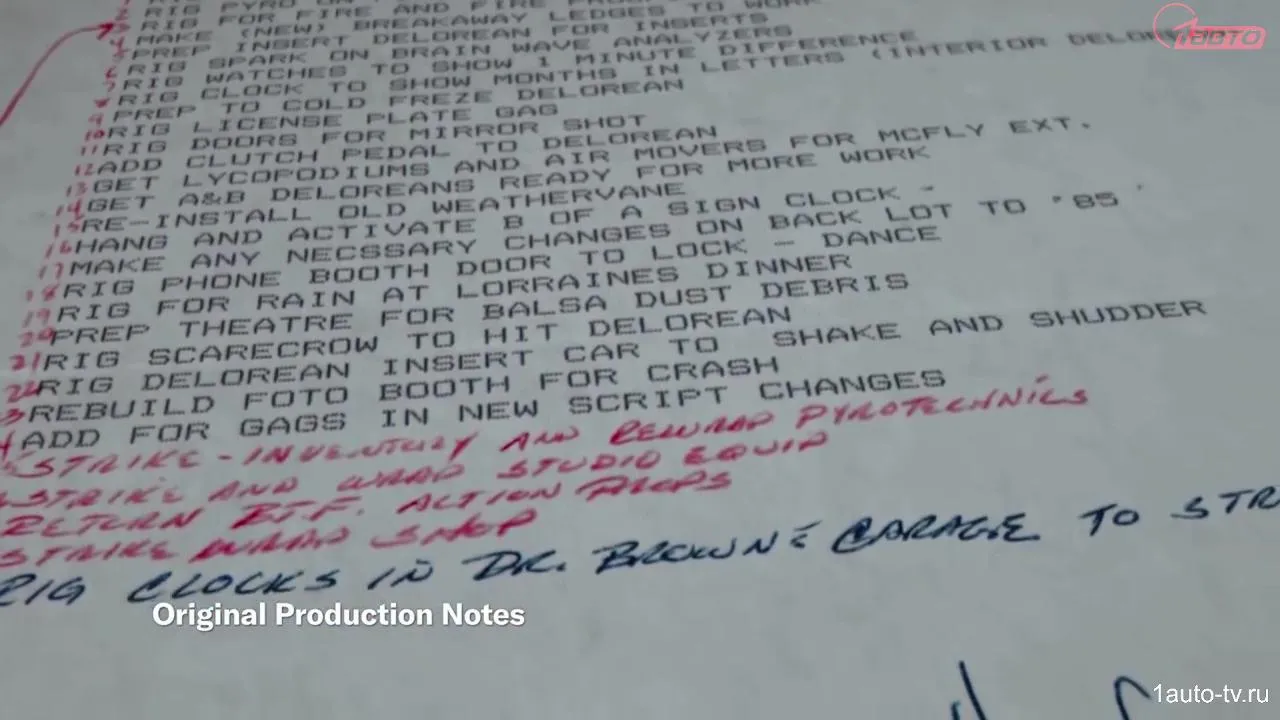 RIG PYRO ON
RIG FOR FIRE AND FIRE
MAKE (NEW) BREAKAWAY LEDGES TO WORK
PREP INSERT DELOREAN FOR INSERTS
RIG SPARK ON BRAIN WAVE ANALYZERS
RIG WATCHES TO SHOW 1 MINUTE DIFFERENCE
8 RIG CLOCK TO SHOW MONTHS IN LETTERS (INTERIOR
9 PREP TO COLD FREZE DELOREAN
10 RIG LICENSE PLATE GAG
11 RIG DOORS FOR MIRROR SHOT
12 ADD CLUTCH PEDAL TO DELOREAN
13 GET LYCOPODIUMS AND AIR MOVERS FOR MCFLY EXT.
14 GET A&B DELOREANS READY FOR MORE WORK
15 RE-INSTALL OLD WEATHERVANE
16 HANG AND ACTIVATE B OF A SIGN CLOCK -
17 MAKE ANY NECSSARY CHANGES ON BACK LOT TO '85'
18 RIG PHONE BOOTH DOOR TO LOCK - DANCE
19 RIG FOR RAIN AT LORRAINES DINNER
20 PREP THEATRE FOR BALSA DUST DEBRIS
21 RIG SCARECROW TO HIT DELOREAN
22 RIG DELOREAN INSERT CAR TO SHAKE AND SHUDDER
3 REBUILD FOTO BOOTH FOR CRASH
4 ADD FOR GAGS IN NEW SCRIPT CHANGES
STRIKE - INVENTORY AND REWRAP PYROTECHNICS
STRIKE AND WRAP STUDIO EQUIP
RETURN B.T.F. ACTION PROPS
STRIKE WRAP SHOP
RIG CLOCKS IN DR. BROWN'S GARAGE TO STR
Original Production Notes
1АВТО
1auto-tv.ru